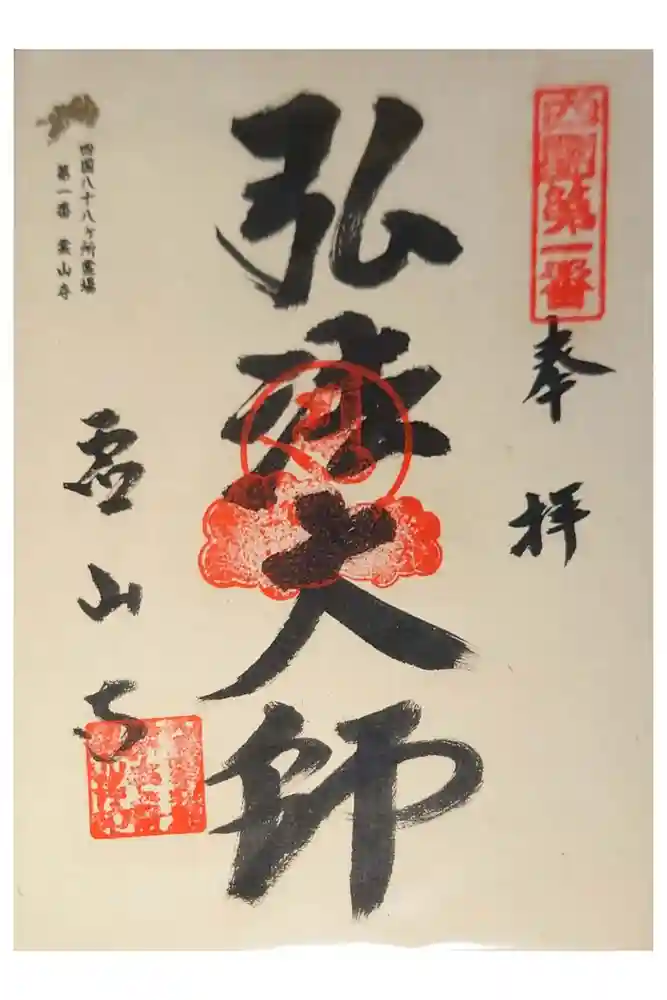 四國第一番
奉拝
弘法大師
四国八十八ヶ所霊場
第一番 霊山寺
霊山寺